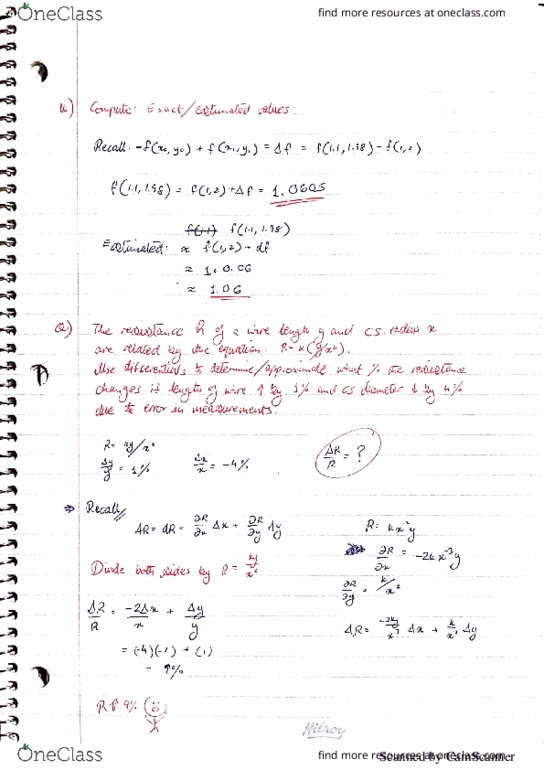 OneClass
find more resources at oneclass.com
4) Compute: Exact/estimated values:
Recall: -f(x₀,y₀) + f(x₁,y₁) = Δf = f(1.1,1.98) - f(1,2)
f(1.1,1.98) = f(1,2)+Δf = 1.0605
f(1.1) f(1.1,1.98)
Estimated: ≈ f(1,2) + df
≈ 1.0.06
≈ 1.06
Q) The resistance R of a wire length y and cs radius x
are related by the equation: R=k(y/x²).
Use differentials to determine/approximate what % the resistance
changes if length of wire ↑ by 1% and cs diameter ↓ by 4%
due to error in measurements.
R= ky/x²
Δy/y = 1% Δx/x = -4% ΔR/R = ?
⇒ Recall
ΔR = dR = ∂R/∂x Δx + ∂R/∂y Δy
R= kx⁻²y
∂R/∂x = -2kx⁻³y
Divide both sides by R = ky/x²
∂R/∂y = k/x²
ΔR/R = -2Δx/x + Δy/y
ΔR= -2ky/x³ Δx + k/x² Δy
= (-4)(-2) + (1)
= 9%
R ↑ 9%
Milroy
OneClass
find more resources at oneclass.com
Scanned by CamScanner